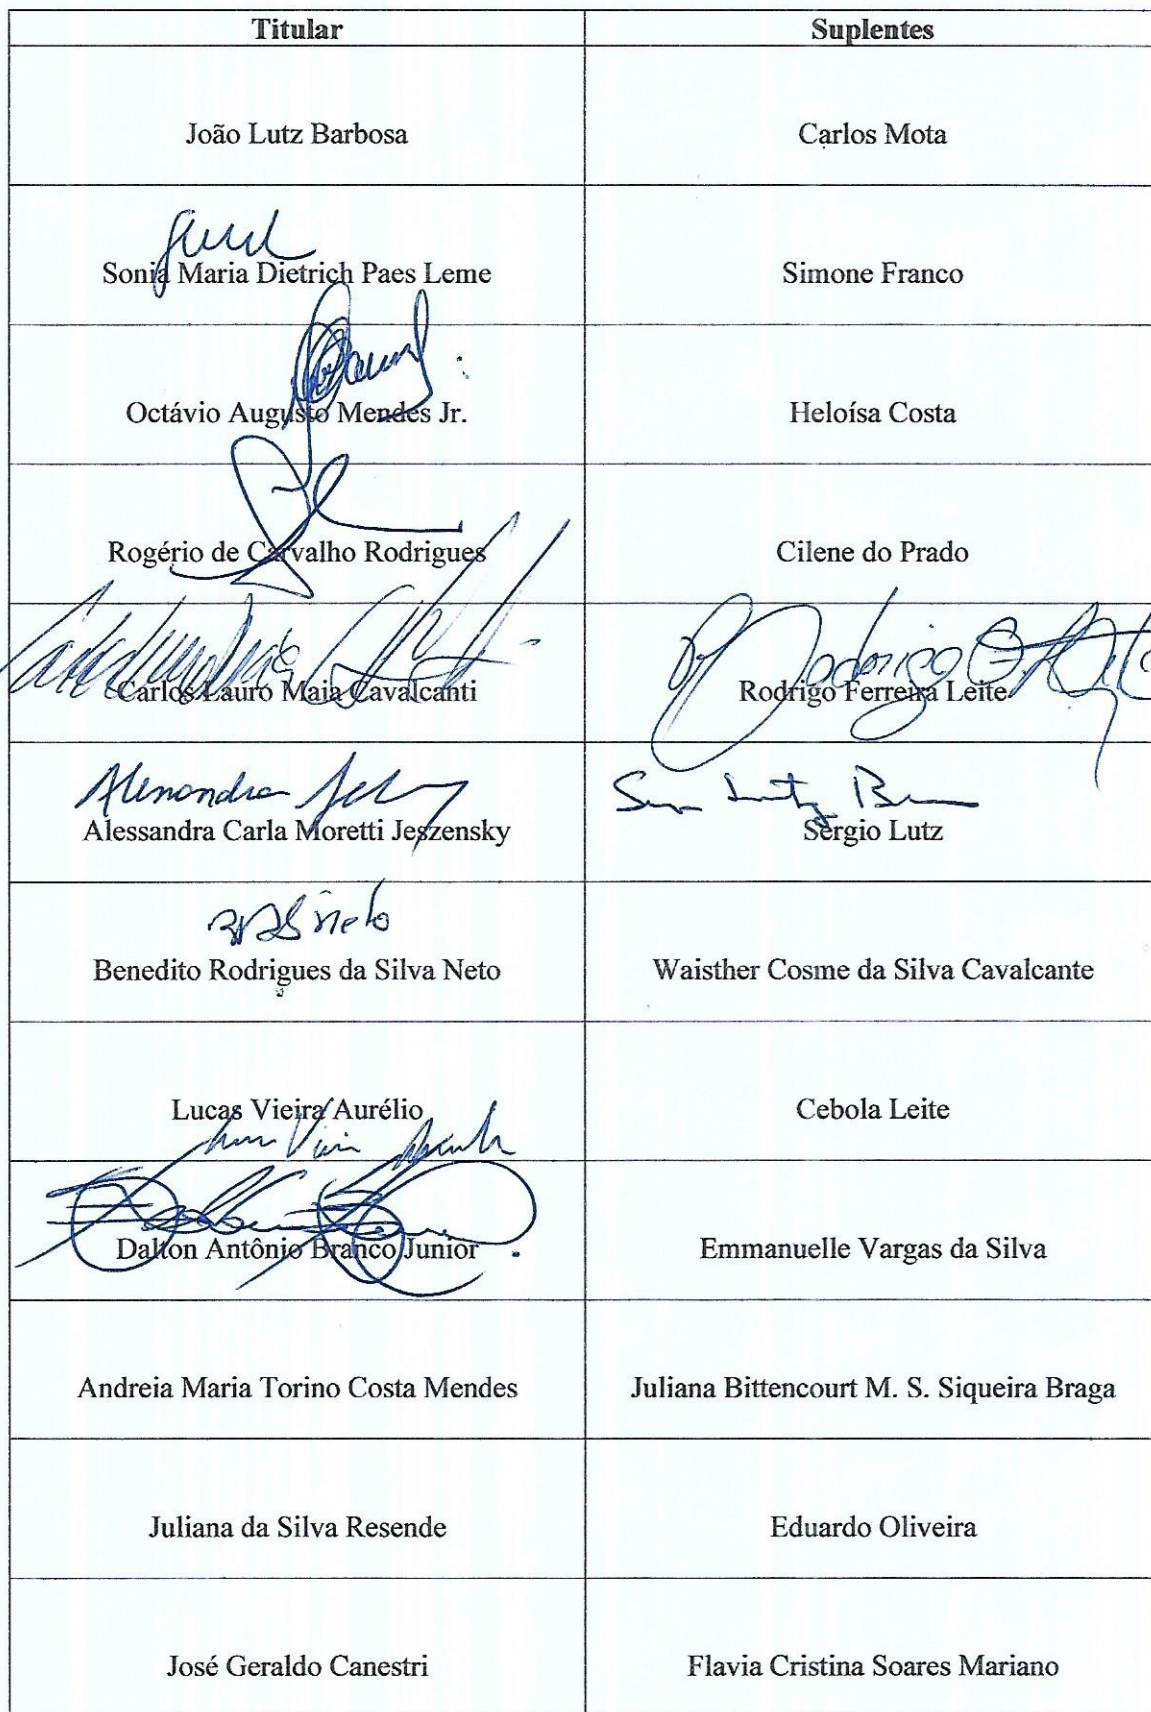 Titular Suplentes
João Lutz Barbosa Carlos Mota
Sonia Maria Dietrich Paes Leme Simone Franco
Octávio Augusto Mendes Jr. Heloísa Costa
Rogério de Carvalho Rodrigues Cilene do Prado
Rodrigo
Carlos Lauro Maia Cavalcanti Rodrigo Ferreira Leite
Alessandra Carla Moretti Jeszensky Sergio Lutz
Neto
Benedito Rodrigues da Silva Neto Waisther Cosme da Silva Cavalcante
Lucas Vieira Aurélio Cebola Leite
Dalton Antônio Branco Junior Emmanuelle Vargas da Silva
Andreia Maria Torino Costa Mendes Juliana Bittencourt M. S. Siqueira Braga
Juliana da Silva Resende Eduardo Oliveira
José Geraldo Canestri Flavia Cristina Soares Mariano